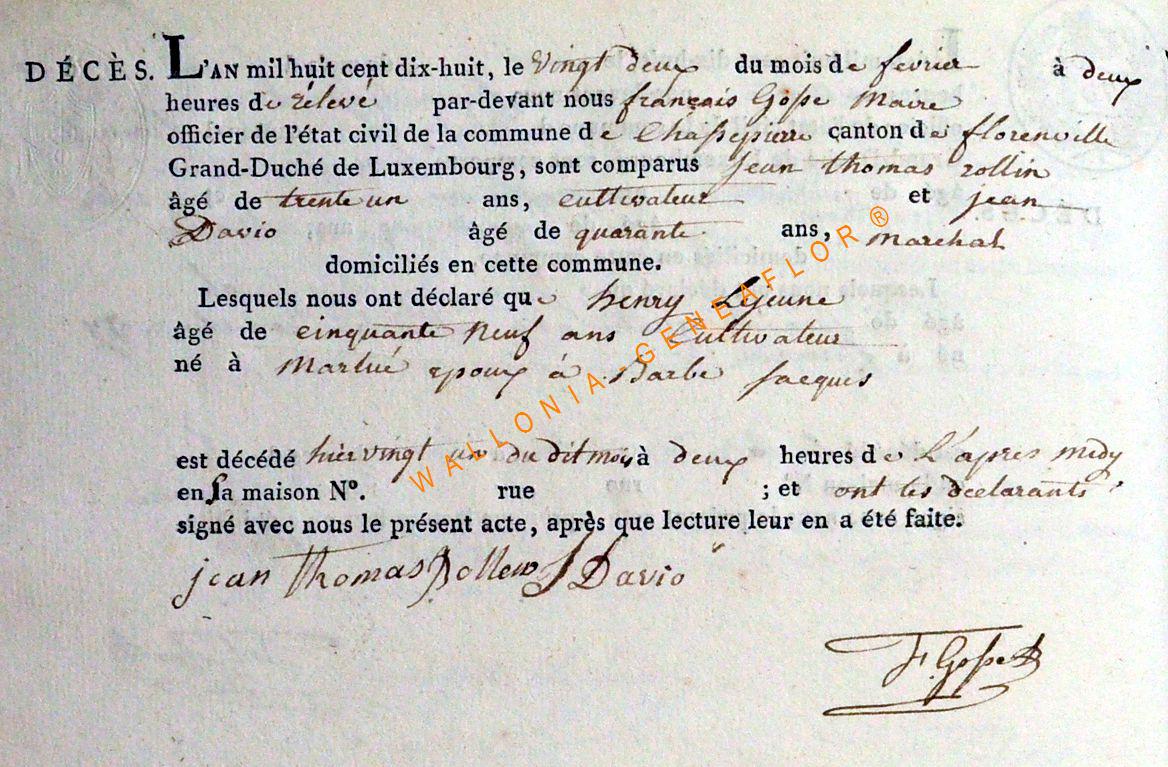 DÉCÈS. L'AN mil huit cent dix-huit, le vingt deux du mois de fevrier à deux
heures de rélevé par-devant nous françois Gosse Maire
officier de l'état civil de la commune de Chassepierre canton de florenville
Grand-Duché de Luxembourg, sont comparus jean thomas rollin
âgé de trente un ans, cultivateur et jean
Davio âgé de quarante ans, marchal
domiciliés en cette commune.
Lesquels nous ont déclaré que henry Lejeune
âgé de cinquante neuf ans Cultivateur
né à Martué epoux à Barbe jacques
est décédé hier vingt un du dit mois à deux heures de L'apres midy
en sa maison N°. rue ; et ont les déclarants
signé avec nous le présent acte, après que lecture leur en a été faite.
jean Thomas J Davio
F. Gosse
WALLONIA-GENEAFLOR®